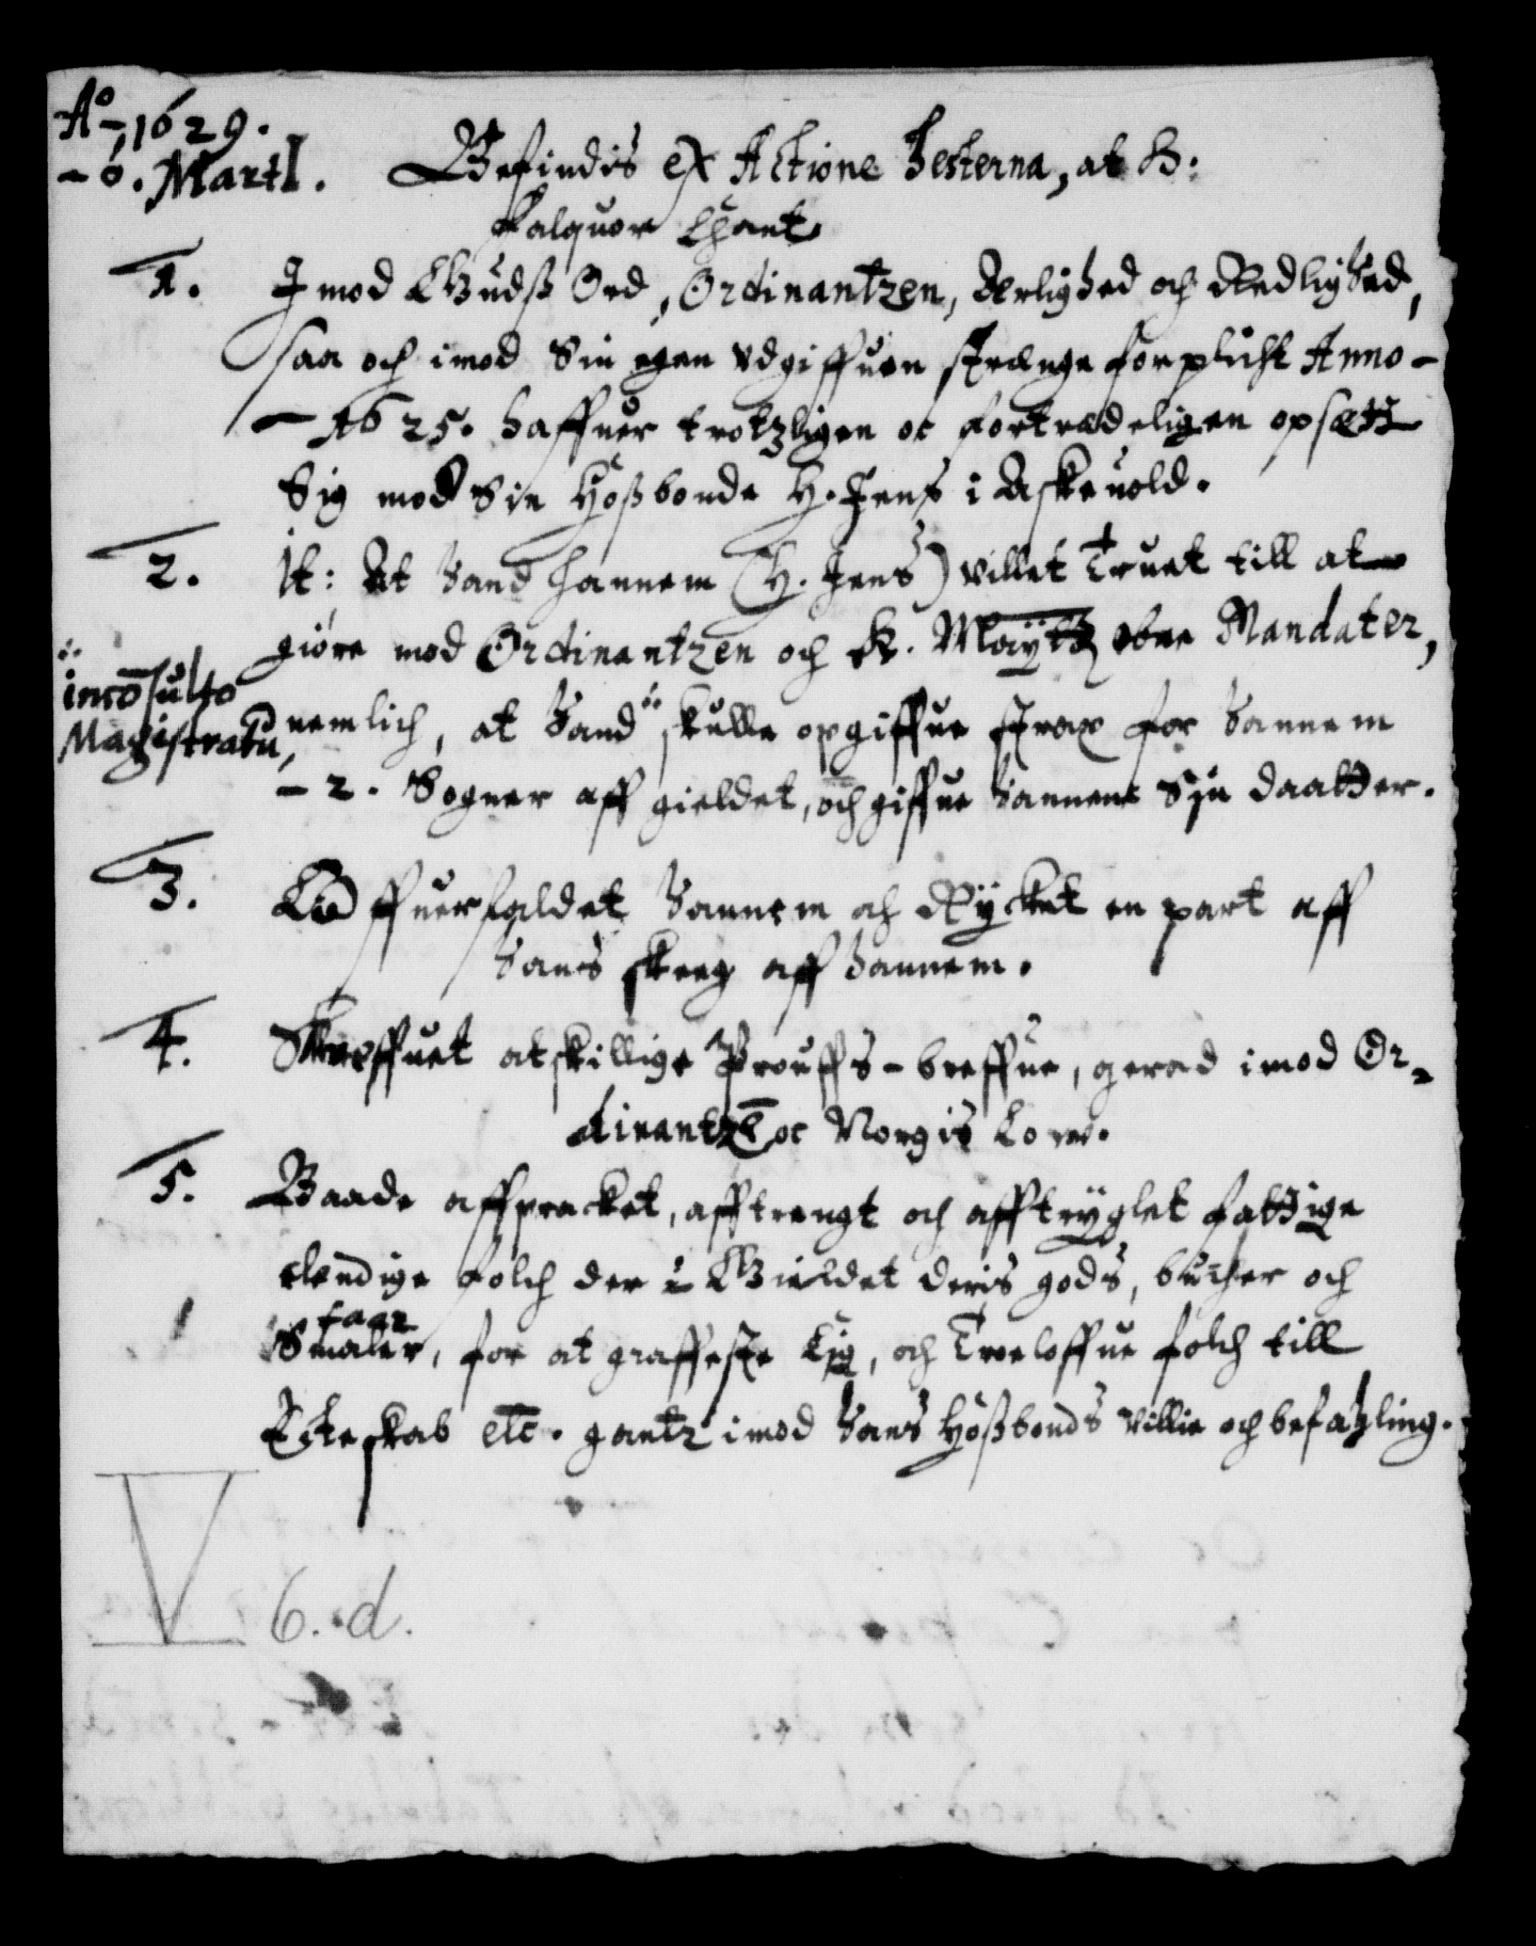 Aº 1629.
6. Martÿ. Befindis ex Actione Hesterna, at H:
Falquor Chant
1. Imod Gudß Ord, Ordinantzen, Ærlighed och Redlighed,
saa och imod Sin egen vdgiffuen strenge forplicht Anno
1625. haffuer trotzligen oc fortrædeligen opsætt
Sig mod Sin Høßbonde H. Jens i Askeuold.
2. It: At hand hannem (H. Jens) villet Truet till at
giøre mod Ordinantzen och K. Maÿtz obne Mandater,
incõsulto
Magistratu,
nemlich, at hand skulle opgiffue strax for hannem
2. Sogner aff gieldet, och giffue hannem Sin daatter.
3. Offuerfaldet hannem och Rÿcket en part aff
hans skeeg aff hannem.
4. Skreffuet atskillige Prouffs-breffue, gerad imod Or=
dinantzẽ oc Norgis Low.
5. Baade affpracket, afftrengt och afftrÿglet fattige
elendige folch der i Gieldet deris gods, bucher och
faar
Smaler, for at graffeste Lig, och Troeloffue folch till
Ecteskab etc. gantz imod hans Høßbonds villie och befahling.
V 6. d.